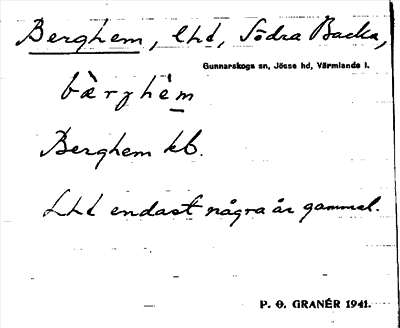 Berghem, lhd, Södra Backa,
Gunnarskogs sn, Jösse hd, Värmlands l.
bæ̀rghèm
Berghem kb.
Lhd endast några år gammal.
P. O. GRANÉR 1941.